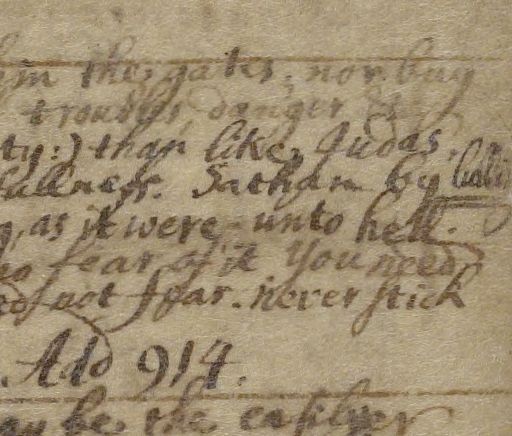 in the gates, nor buy
troubles, danger &
ty:) than like Judas.
fullness. Sathan by
as it were unto hell.
no fear of it you need
not fear. never stick
Add 914.
may be the easilyer